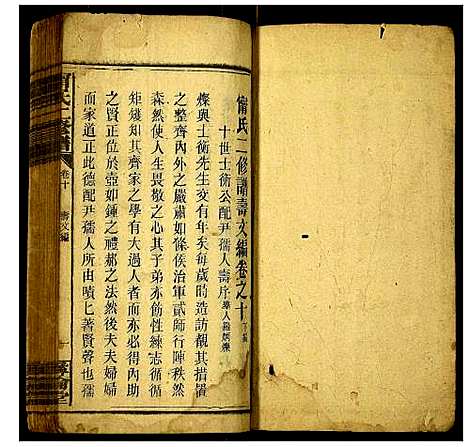 甯氏二修譜壽文編卷之十
十世士衡公配尹孺人壽序
燦與士衡先生交有年矣每歲時造訪觀其措置
之整齊內外之嚴肅如條侯治軍貳師行陣秩然
森然使人生畏敬之心其子弟亦飭性練志循循
矩矱知其齊家之學有大過人者而亦必得內助
之賢正位於壼如鍾之禮郝之法然後夫夫婦婦
而家道正此德配尹孺人所由嘖七著賢聲也孺
卷十
壽文編
一